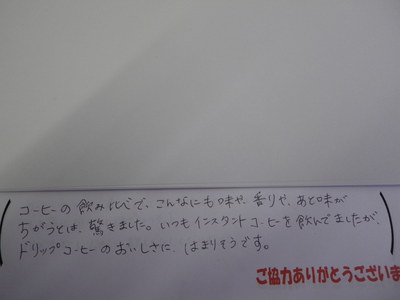 コーヒーの飲み比べで、こんなにも味や、香りや、あと味が
ちがうとは、驚きました。いつもインスタントコーヒーを飲んでましたが、
ドリップコーヒーのおいしさに、はまりそうです。
ご協力ありがとうございま